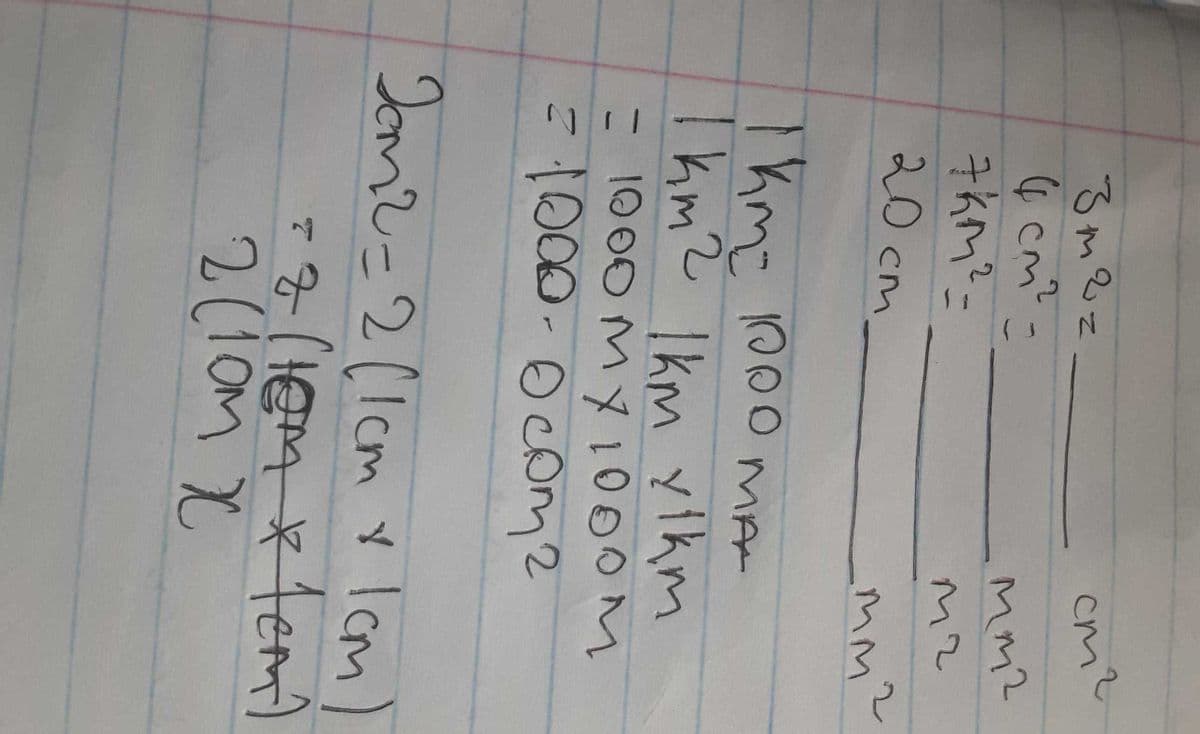 3m² = ______ cm²
4 cm² = ______ mm²
7km² = ______ m²
20 cm ______ mm²
1 km = 1000 m
1 km² 1km x 1km
= 1000 m x 1000 m
= 1000 000 m²
2cm² = 2 (1cm x 1cm)
= 2 (10m x 1cm)
2 (10m x